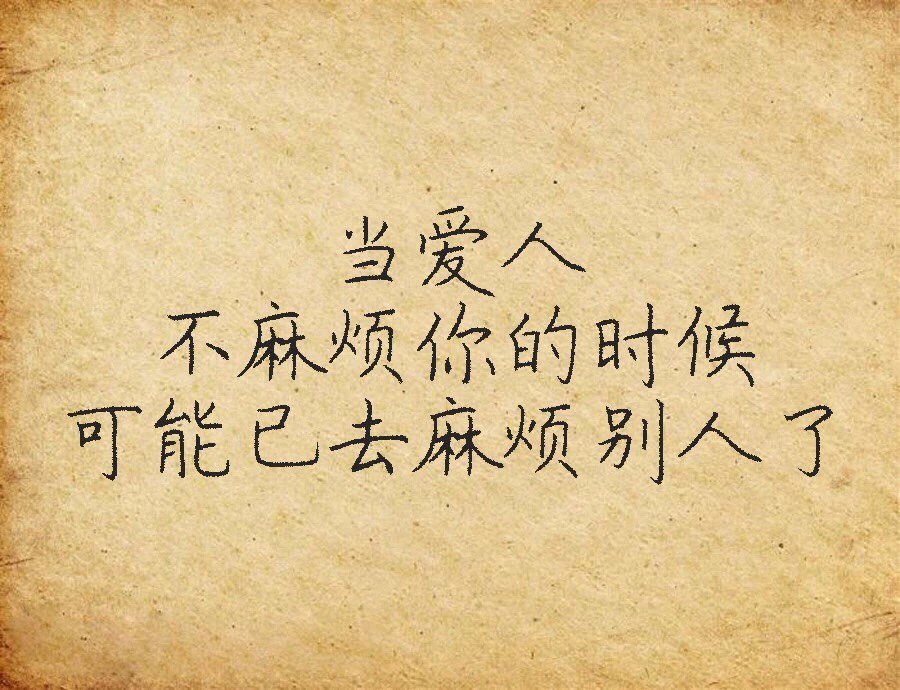 当爱人
不麻烦你的时候
可能已去麻烦别人了